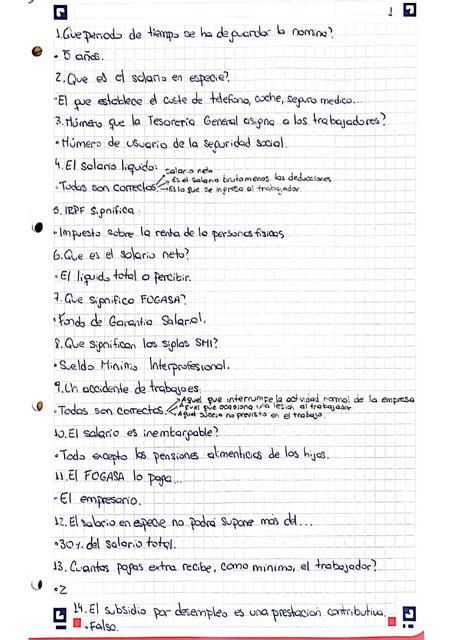 1
1. Que periodo de tiempo se ha de guardar la nomina?
· 5 años.
2. Que es el salario en especie?
· El que establece el coste de telefono, coche, seguro medico...
3. Número que la Tesoreria General asigna a los trabajadores?
· Número de usuario de la seguridad social.
4. El salario liquido:
· Todas son correctas.
Salario neto
Es el salario bruto menos las deducciones
Es lo que se ingresa al trabajador.
5. IRPF significa
· Impuesto sobre la renta de la personas fisicas
6. Que es el salario neto?
· El liquido total a percibir.
7. Que significa FOGASA?
· Fondo de Garantia Salarial.
8. Que significan las siglas SMI?
· Sueldo Minimo Interprofesional.
9. Un accidente de trabajo es
· Todas son correctas.
Aquel que interrumpe la actividad normal de la empresa
Aquel que ocasiona una lesion al trabajador
Aquel suceso no previsto en el trabajo.
10. El salario es inembargable?
· Todo excepto las pensiones alimenticias de los hijos.
11. El FOGASA lo paga...
- El empresario.
12. El salario en especie no podrá suponer más del...
· 30% del salario total.
13. Cuantas pagas extra recibe, como minimo, el trabajador?
· 2
14. El subsidio por desempleo es una prestación contributiva
· Falso.